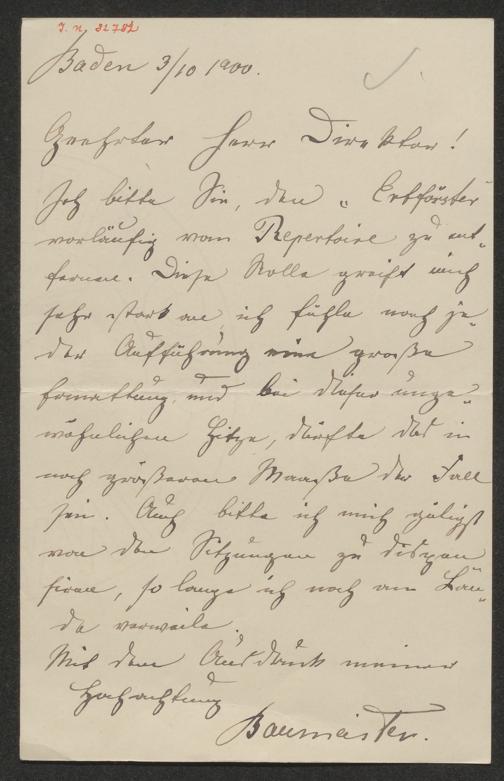 J. N. 32782
Baden 3/10 1900.
Geehrter Herr Direktor!
Ich bitte Sie, den „Erbförster"
vorläufig vom Repertoire zu ent-
fernen. Diese Rolle greift mich
sehr stark an, ich fühle nach je-
der Aufführung eine große
Ermattung, und bei dieser unge-
wöhnlichen Hitze, dürfte das in
noch größerem Maaße der Fall
sein. Auch bitte ich mich gütigst
von den Sitzungen zu dispen-
siren, so lange ich noch am Lan-
de verweile.
Mit dem Ausdruck meiner
Hochachtung
Baumeister.